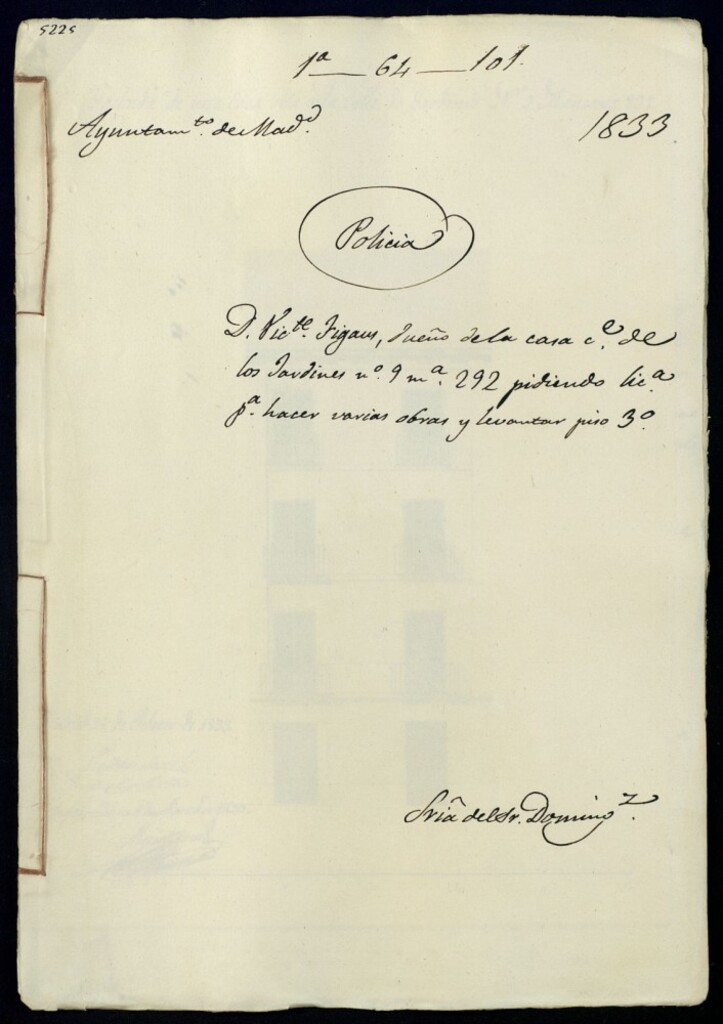 5225
1ª — 64 — 101.
Ayuntam.to de Mad.d 1833
Policia
D. Vic.te Figaus, dueño de la casa c.e de
los Jardines n.o 9 m.a 292 pidiendo lic.a
p.a hacer varias obras y levantar piso 3.o
Sria del Sr. Doming.z